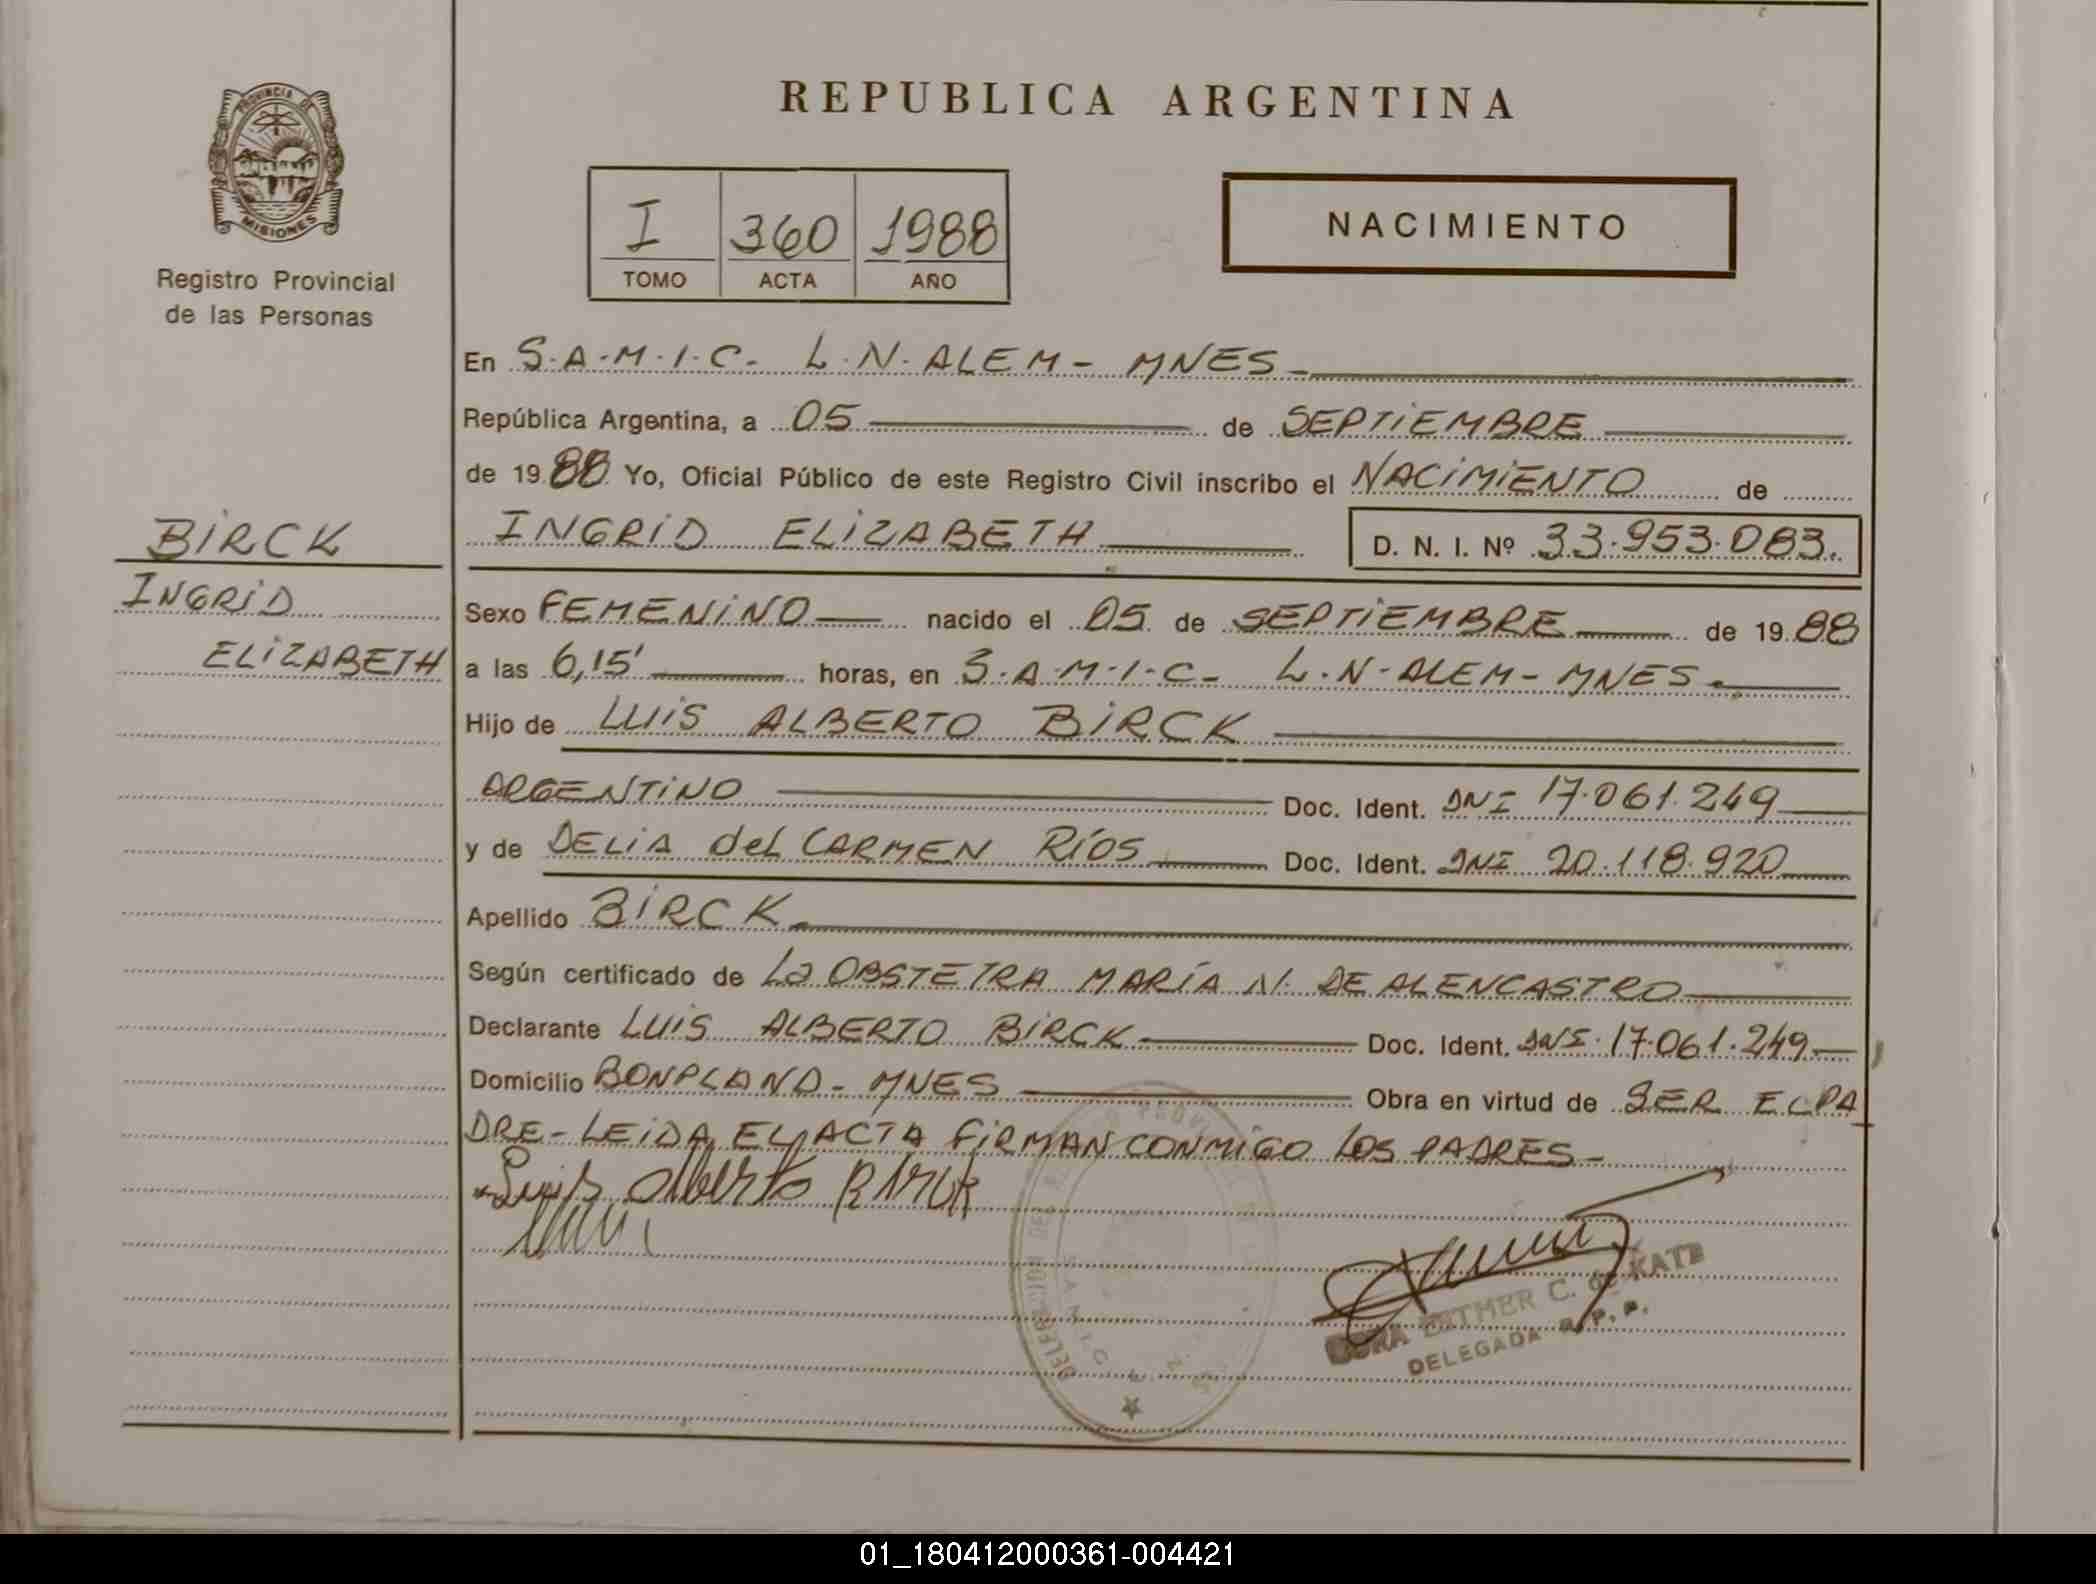 REPUBLICA ARGENTINA
PROVINCIA DE
MISIONES
Registro Provincial
de las Personas
I 360 1988
TOMO ACTA AÑO
NACIMIENTO
En S.A.M.I.C. L.N.ALEM - MNES
República Argentina, a 05 de SEPTIEMBRE
de 1988 Yo, Oficial Público de este Registro Civil inscribo el NACIMIENTO de
INGRID ELIZABETH D. N. I. Nº 33.953.083.
BIRCK
INGRID
ELIZABETH
Sexo FEMENINO nacido el 05 de SEPTIEMBRE de 1988
a las 6,15' horas, en S.A.M.I.C. L.N-ALEM-MNES.
Hijo de LUIS ALBERTO BIRCK
ARGENTINO Doc. Ident. DNI 17.061.249
y de DELIA del CARMEN RÍOS Doc. Ident. DNI 20.118.920
Apellido BIRCK
Según certificado de La OBSTETRA MARÍA N. DE ALENCASTRO
Declarante LUIS ALBERTO BIRCK Doc. Ident. DNI. 17.061.249
Domicilio BONPLAND - MNES Obra en virtud de SER EL PA
DRE - LEIDA EL ACTA FIRMAN CONMIGO LOS PADRES -
Luis Alberto Birck
ESTHER C. de KATZ
DELEGADA R. P. P.
01_180412000361-004421